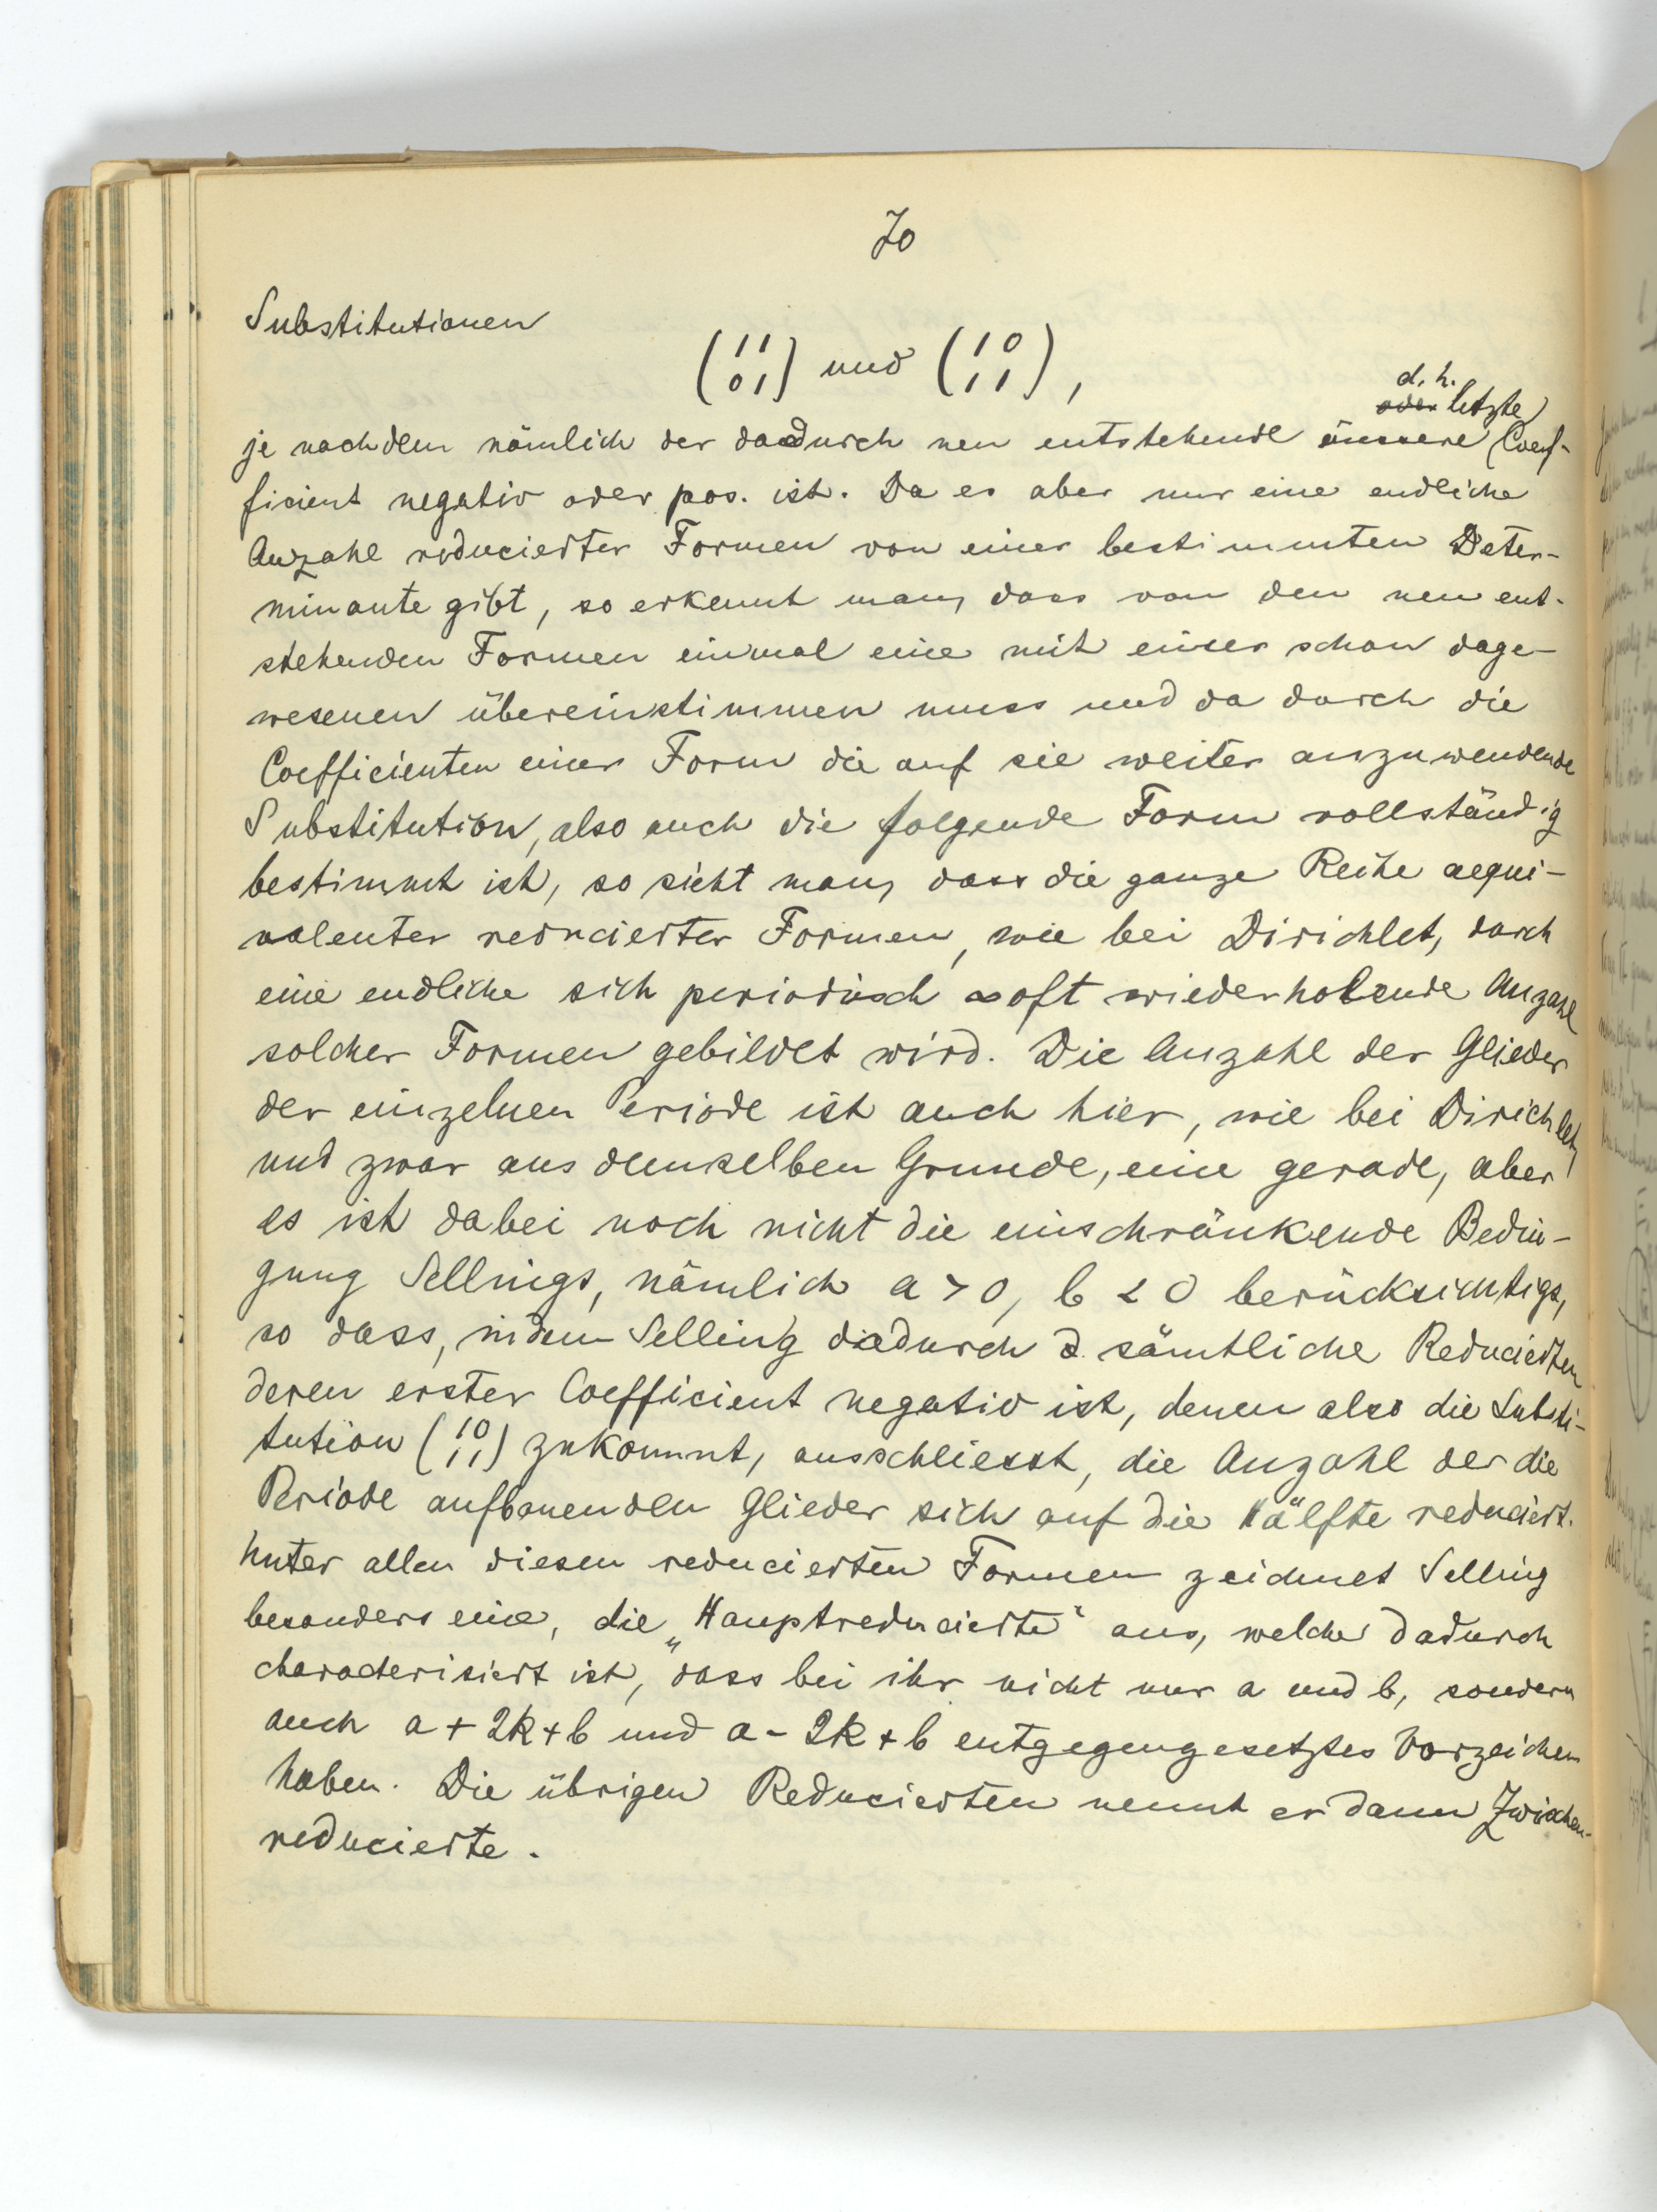 70
Substitutionen
(1 1 / 0 1) und (1 0 / 1 1),
d. h.
oder letzte
je nachdem nämlich der dadurch neu entstehende äussere Coef-
ficient negativ oder pos. ist. Da es aber nur eine endliche
Anzahl reducierter Formen von einer bestimmten Deter-
minante gibt, so erkennt man, dass von den neu ent-
stehenden Formen einmal eine mit einer schon dage-
wesenen übereinstimmen muss und da durch die
Coefficienten einer Form die auf sie weiter anzuwendende
Substitution, also auch die folgende Form vollständig
bestimmt ist, so sieht man, dass die ganze Reihe aequi-
valenter reducierter Formen, wie bei Dirichlet, durch
eine endliche sich periodisch ∞ oft wiederholende Anzahl
solcher Formen gebildet wird. Die Anzahl der Glieder
der einzelnen Periode ist auch hier, wie bei Dirichlet,
und zwar aus demselben Grunde, eine gerade, aber
es ist dabei noch nicht die einschränkende Bedin-
gung Sellings, nämlich a > 0, b < 0 berücksichtigt,
so dass, indem Selling dadurch d. sämtliche Reducierten
deren erster Coefficient negativ ist, denen also die Substi-
tution (1 0 / 1 1) zukommt, ausschliesst, die Anzahl der die
Periode aufbauenden Glieder sich auf die Hälfte reduciert.
Unter allen diesen reducierten Formen zeichnet Selling
besonders eine, die „Hauptreducierte“ aus, welche dadurch
characterisiert ist, dass bei ihr nicht nur a und b, sondern
auch a + 2k + b und a - 2k + b entgegengesetztes Vorzeichen
haben. Die übrigen Reducierten nennt er dann Zwischen-
reducierte.